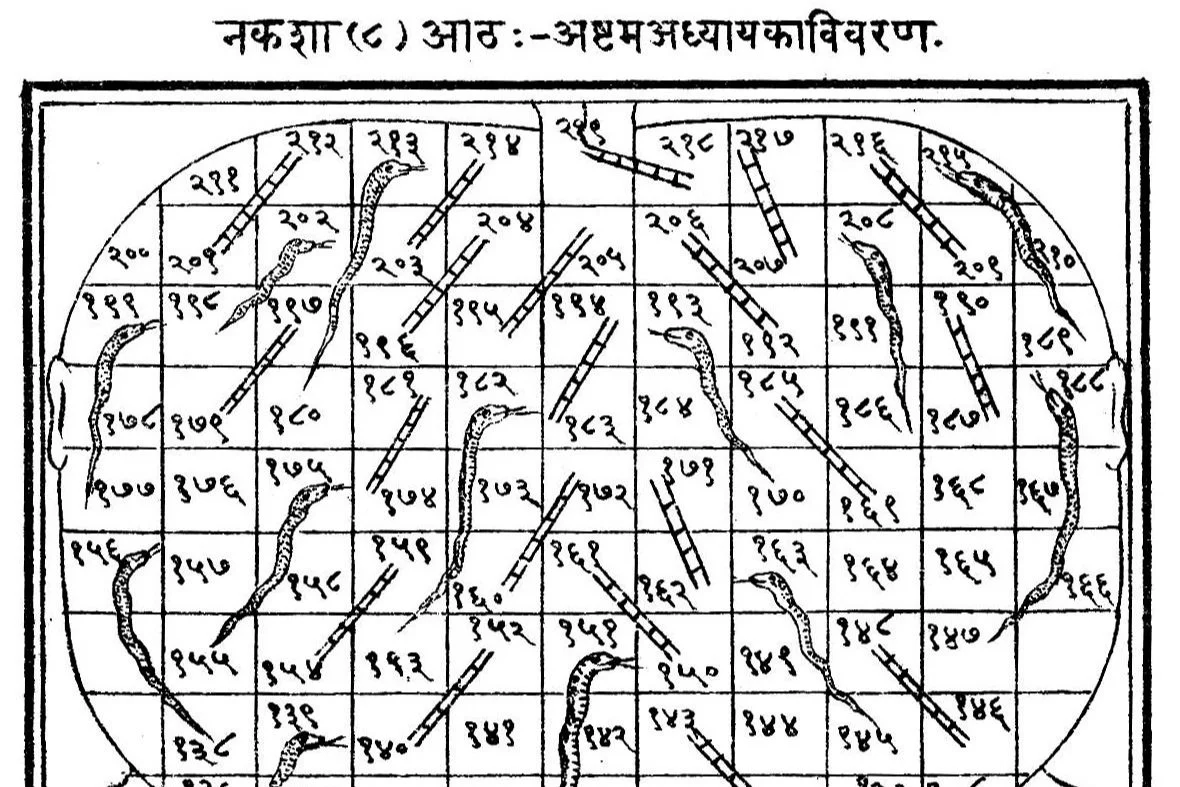 नकशा (८) आठ :- अष्टमअध्यायकाविवरण.
२११ २१२ २१३ २१४ २१९ २१८ २१७ २१६ २१५
२०० २०१ २०२ २०३ २०४ २०५ २०६ २०७ २०८ २०९ २१०
१९९ १९८ १९७ १९६ १९५ १९४ १९३ १९२ १९१ १९० १८९
१७८ १७९ १८० १८१ १८२ १८३ १८४ १८५ १८६ १८७ १८८
१७७ १७६ १७५ १७४ १७३ १७२ १७१ १७० १६९ १६८ १६७
१५६ १५७ १५८ १५९ १६० १६१ १६२ १६३ १६४ १६५ १६६
१५५ १५४ १६३ १५२ १५१ १५० १४९ १४८ १४७
१३८ १३९ १४० १४१ १४२ १४३ १४४ १४५ १४६